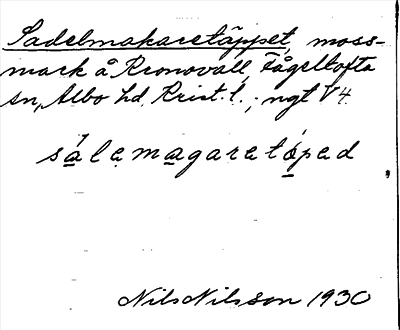 Sadelmakaretäppet, moss-
mark å Kronovall, Fågeltofta
sn, Albo hd, Krist. l.; ngt V4.
sálemagaretápad
Nils Nilsson 1930